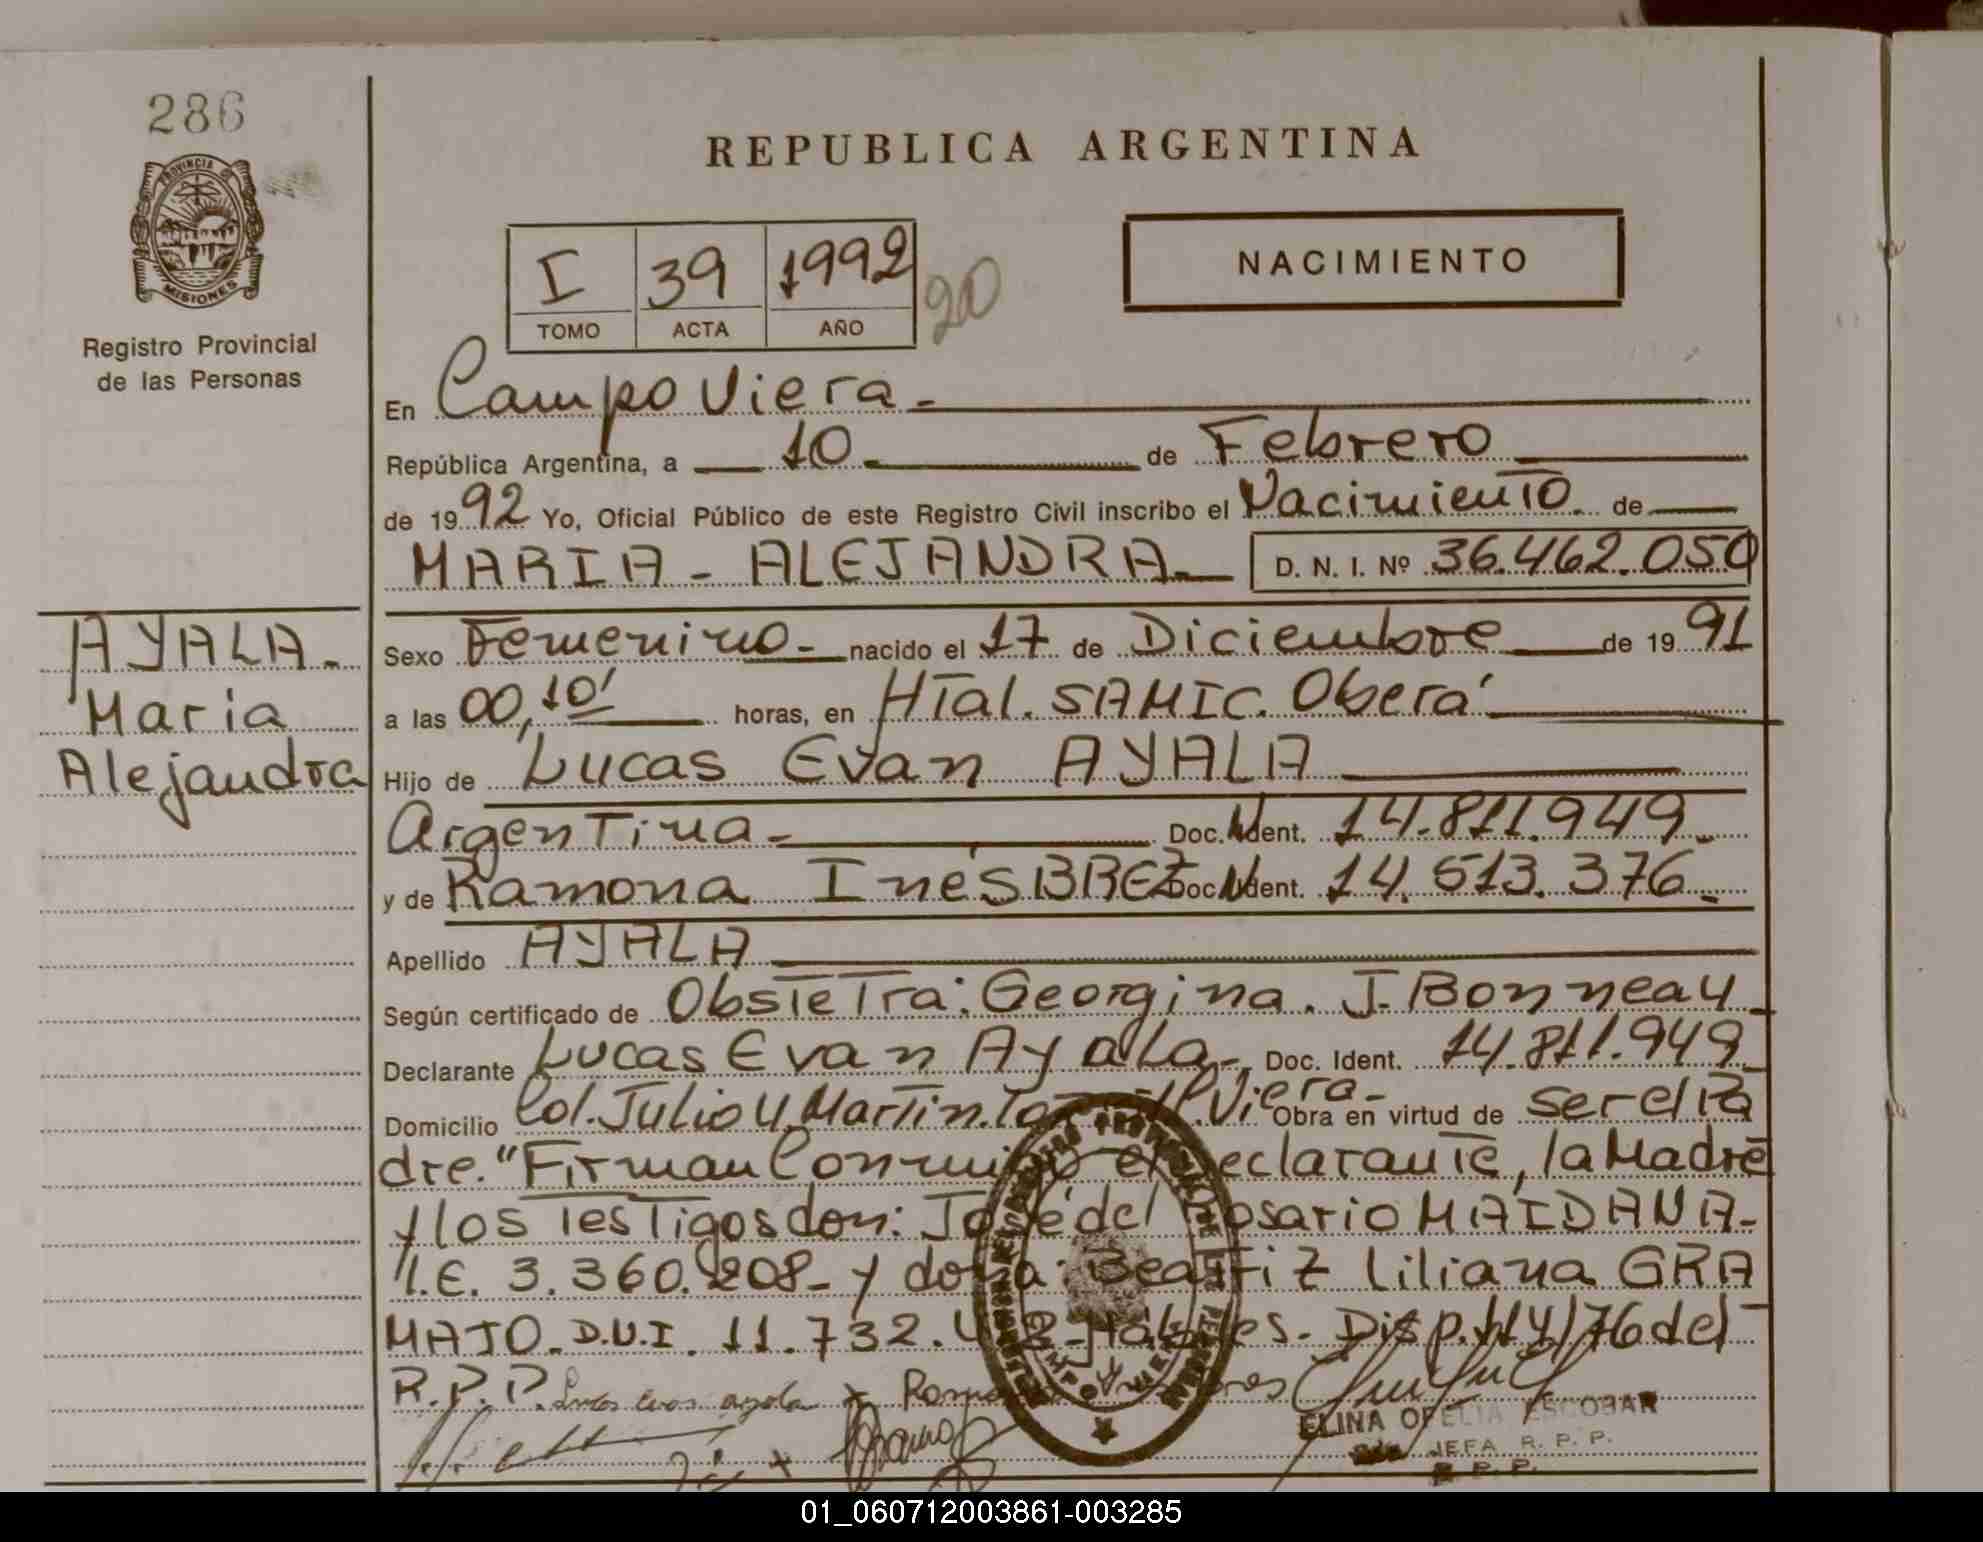 286
PROVINCIA DE
MISIONES
Registro Provincial
de las Personas
REPUBLICA ARGENTINA
I 39 1992 20
TOMO ACTA AÑO
NACIMIENTO
En Campo Viera.
República Argentina, a 10 de Febrero
de 1992 Yo, Oficial Público de este Registro Civil inscribo el Nacimiento de
MARIA - ALEJANDRA D. N. I. Nº 36.462.050
AYALA.
Maria
Alejandra
Sexo Femenino nacido el 17 de Diciembre de 1991
a las 00,10' horas, en HTal. SAMIC. Oberá
Hijo de Lucas Evan AYALA
Argentina Doc. Ident. 14.811.949
y de Ramona Inés BREZ Doc. Ident. 14.513.376
Apellido AYALA
Según certificado de Obstetra: Georgina. J. Bonneau
Declarante Lucas Evan Ayala Doc. Ident. 14.811.949
Domicilio Col. Julio U. Martin. Viera Obra en virtud de ser el Pa
dre. "Firman Conmigo el declarante, la Madre
y los Testigos don: José del Rosario MAIDANA-
3.360.208- y doña: Beatriz Liliana GRA
MAJO. D.N.I. 11.732. Hábiles. Disp. del
R.P.P.
ELINA OFELIA ESCOBAR
JEFA R. P. P.
R. P. P.
01_060712003861-003285